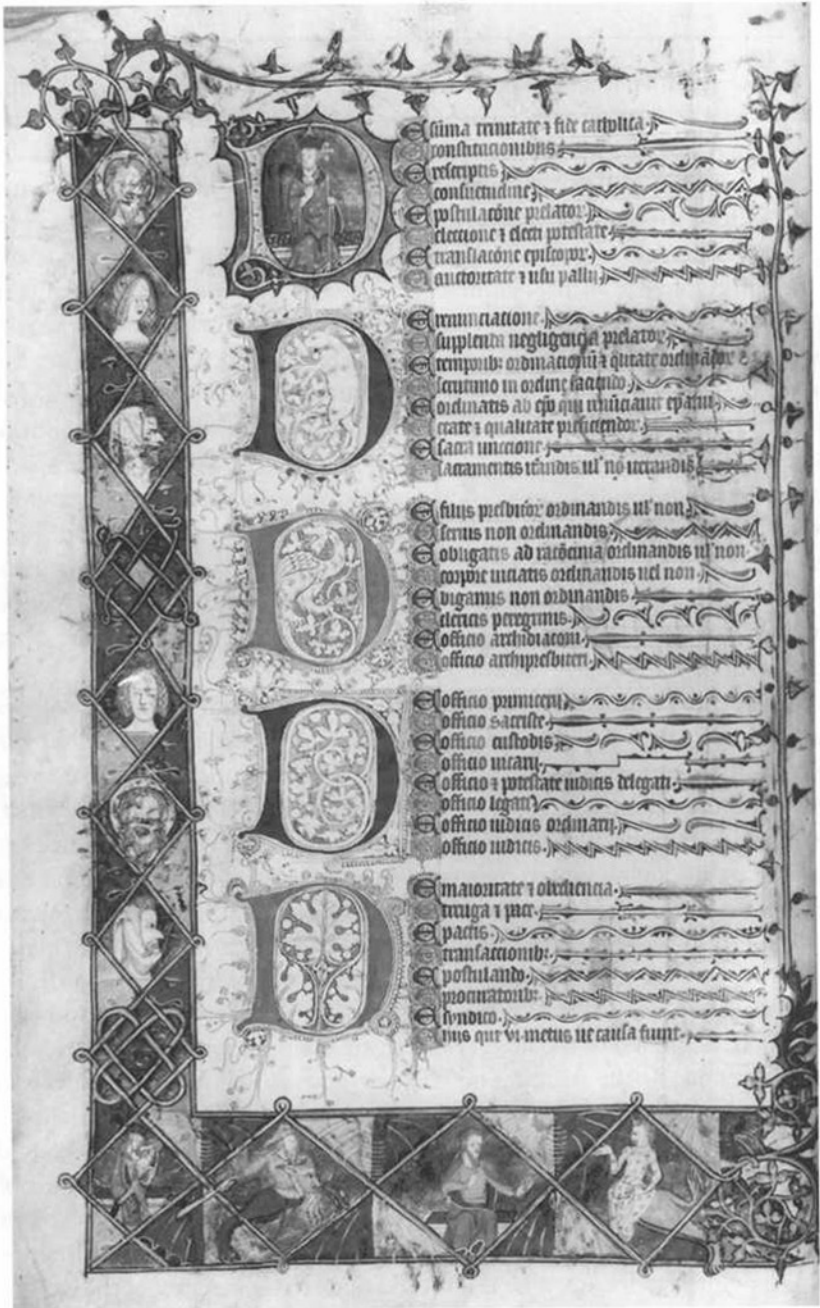 E sūma trinitate ⁊ fide catholica.
E constitucionibus
E rescriptis
E consuetudine
E postulacōne prelator.
E eleccione ⁊ electi potestate
E translacōne episcopor.
E auctoritate ⁊ usu pallii
E renunciacione.
E supplenda negligencia prelator.
E temporib: ordinacionū ⁊ qlitate ordinādor
E scrutinio in ordine faciendo
E ordinatis ab ep̄o qui renūciavit
E etate ⁊ qualitate preficiendor.
E sacra unccione
E sacramentis itandis ul' nō iterandis
E filiis presbiteror ordinandis ul' non
E seruis non ordinandis
E obligatis ad racōcinia ordinandis ul' non.
E corpore uiciatis ordinandis uel non.
E bigamis non ordinandis
E clericis peregrinis.
E officio archidiaconi.
E officio archipresbiteri
E officio primicerij
E officio sacriste
E officio custodis
E officio uicarij.
E officio ⁊ potestate iudicis delegati.
E officio legati
E officio iudicis ordinarij.
E officio iudicis.
E maioritate ⁊ obediencia.
E treuga ⁊ pace.
E pactis
E transaccionib:
E postulando.
E procuratorib:
E syndico.
E hiis que vi metus ue causa fiunt.